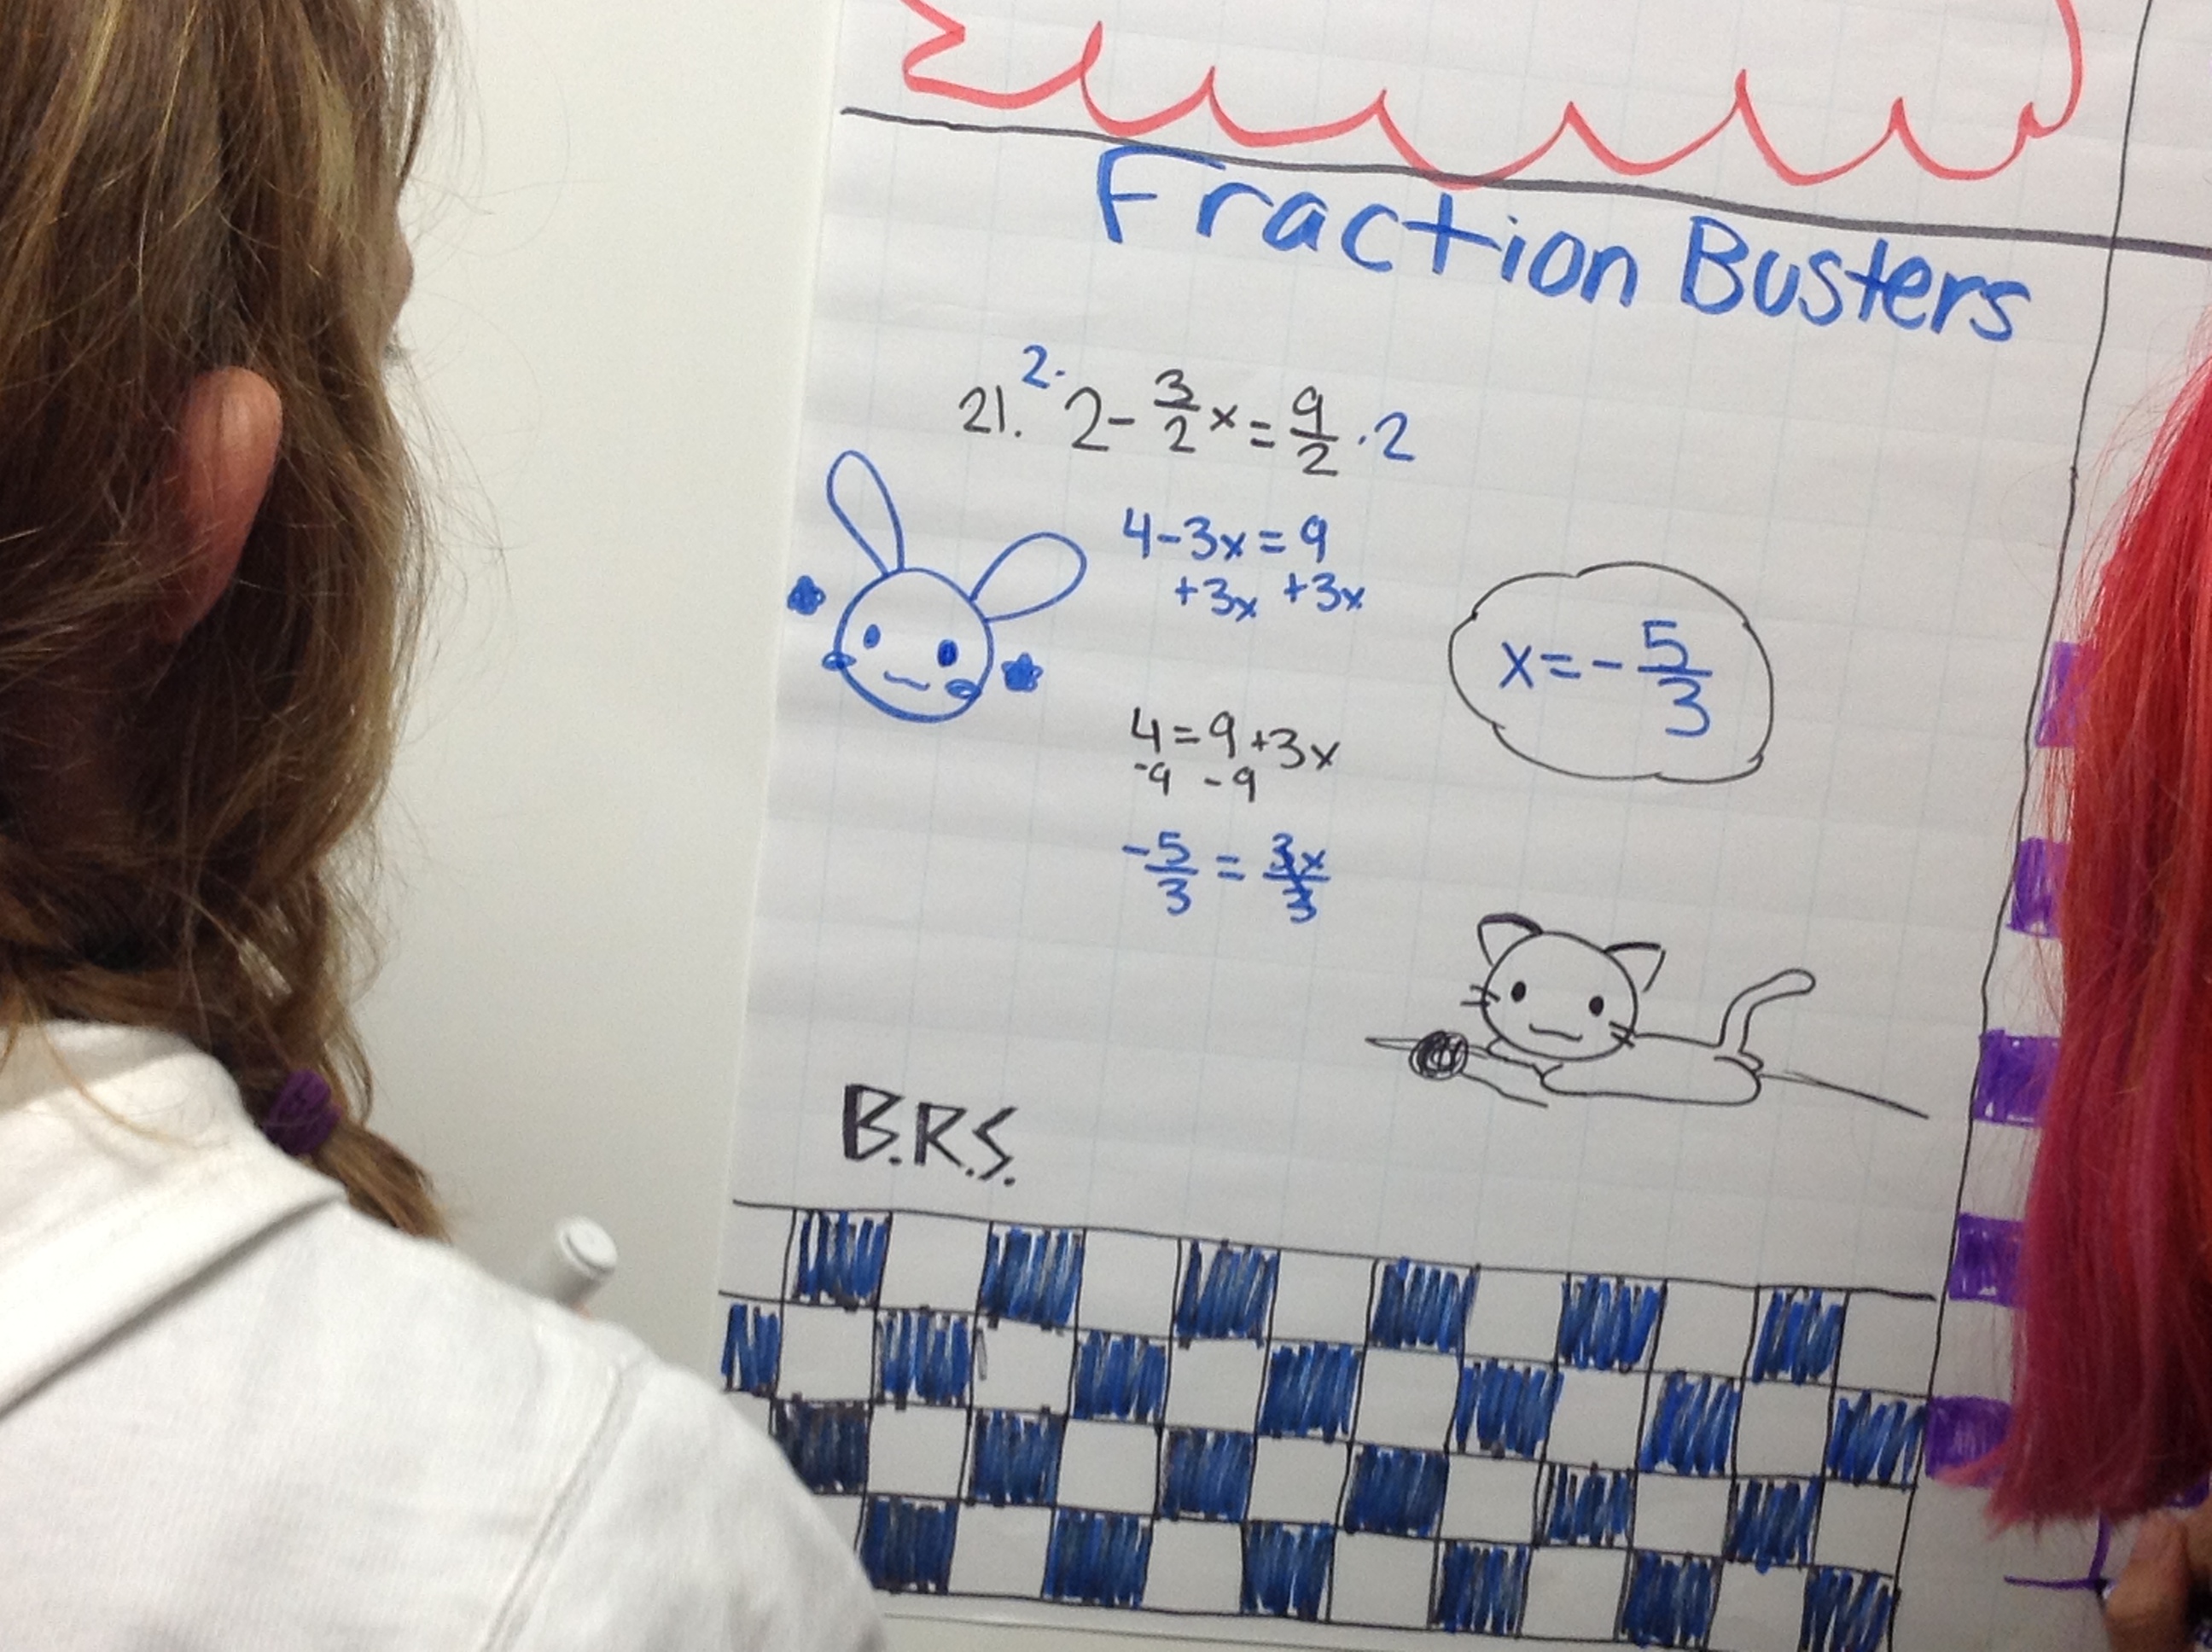 Fraction Busters
21. 2· 2 - 3/2 x = 9/2 ·2
4-3x=9
+3x +3x
x=-5/3
4=9+3x
-9 -9
-5/3 = 3x/3
B.R.S.